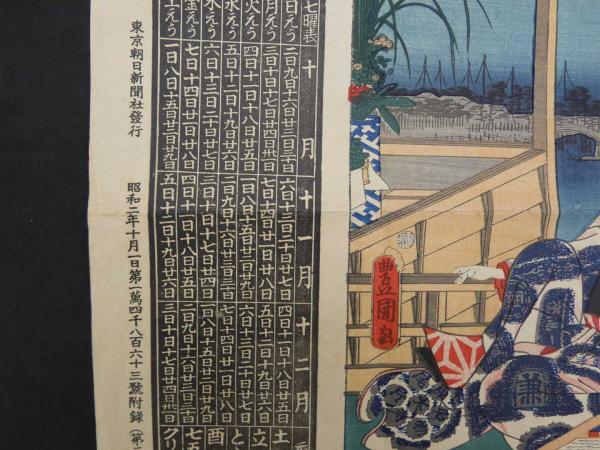 豊國画
七曜表 十月 十一月 十二月
日えう 二日九日十六日廿三日三十日 六日十三日二十日廿七日 四日十一日十八日廿五日
月えう 三日十日十七日廿四日卅一日 七日十四日廿一日廿八日 五日十二日十九日廿六日
火えう 四日十一日十八日廿五日 一日八日十五日廿二日廿九日 六日十三日二十日廿七日
水えう 五日十二日十九日廿六日 二日九日十六日廿三日三十日 七日十四日廿一日廿八日
木えう 六日十三日二十日廿七日 三日十日十七日廿四日 一日八日十五日廿二日廿九日
金えう 七日十四日廿一日廿八日 四日十一日十八日廿五日 二日九日十六日廿三日三十日
土えう 一日八日十五日廿二日廿九日 五日十二日十九日廿六日 三日十日十七日廿四日卅一日
土
立
と
酉
七五
クリ
東京朝日新聞社發行
昭和二年十月一日第一萬四千八百六十三號附録(第二